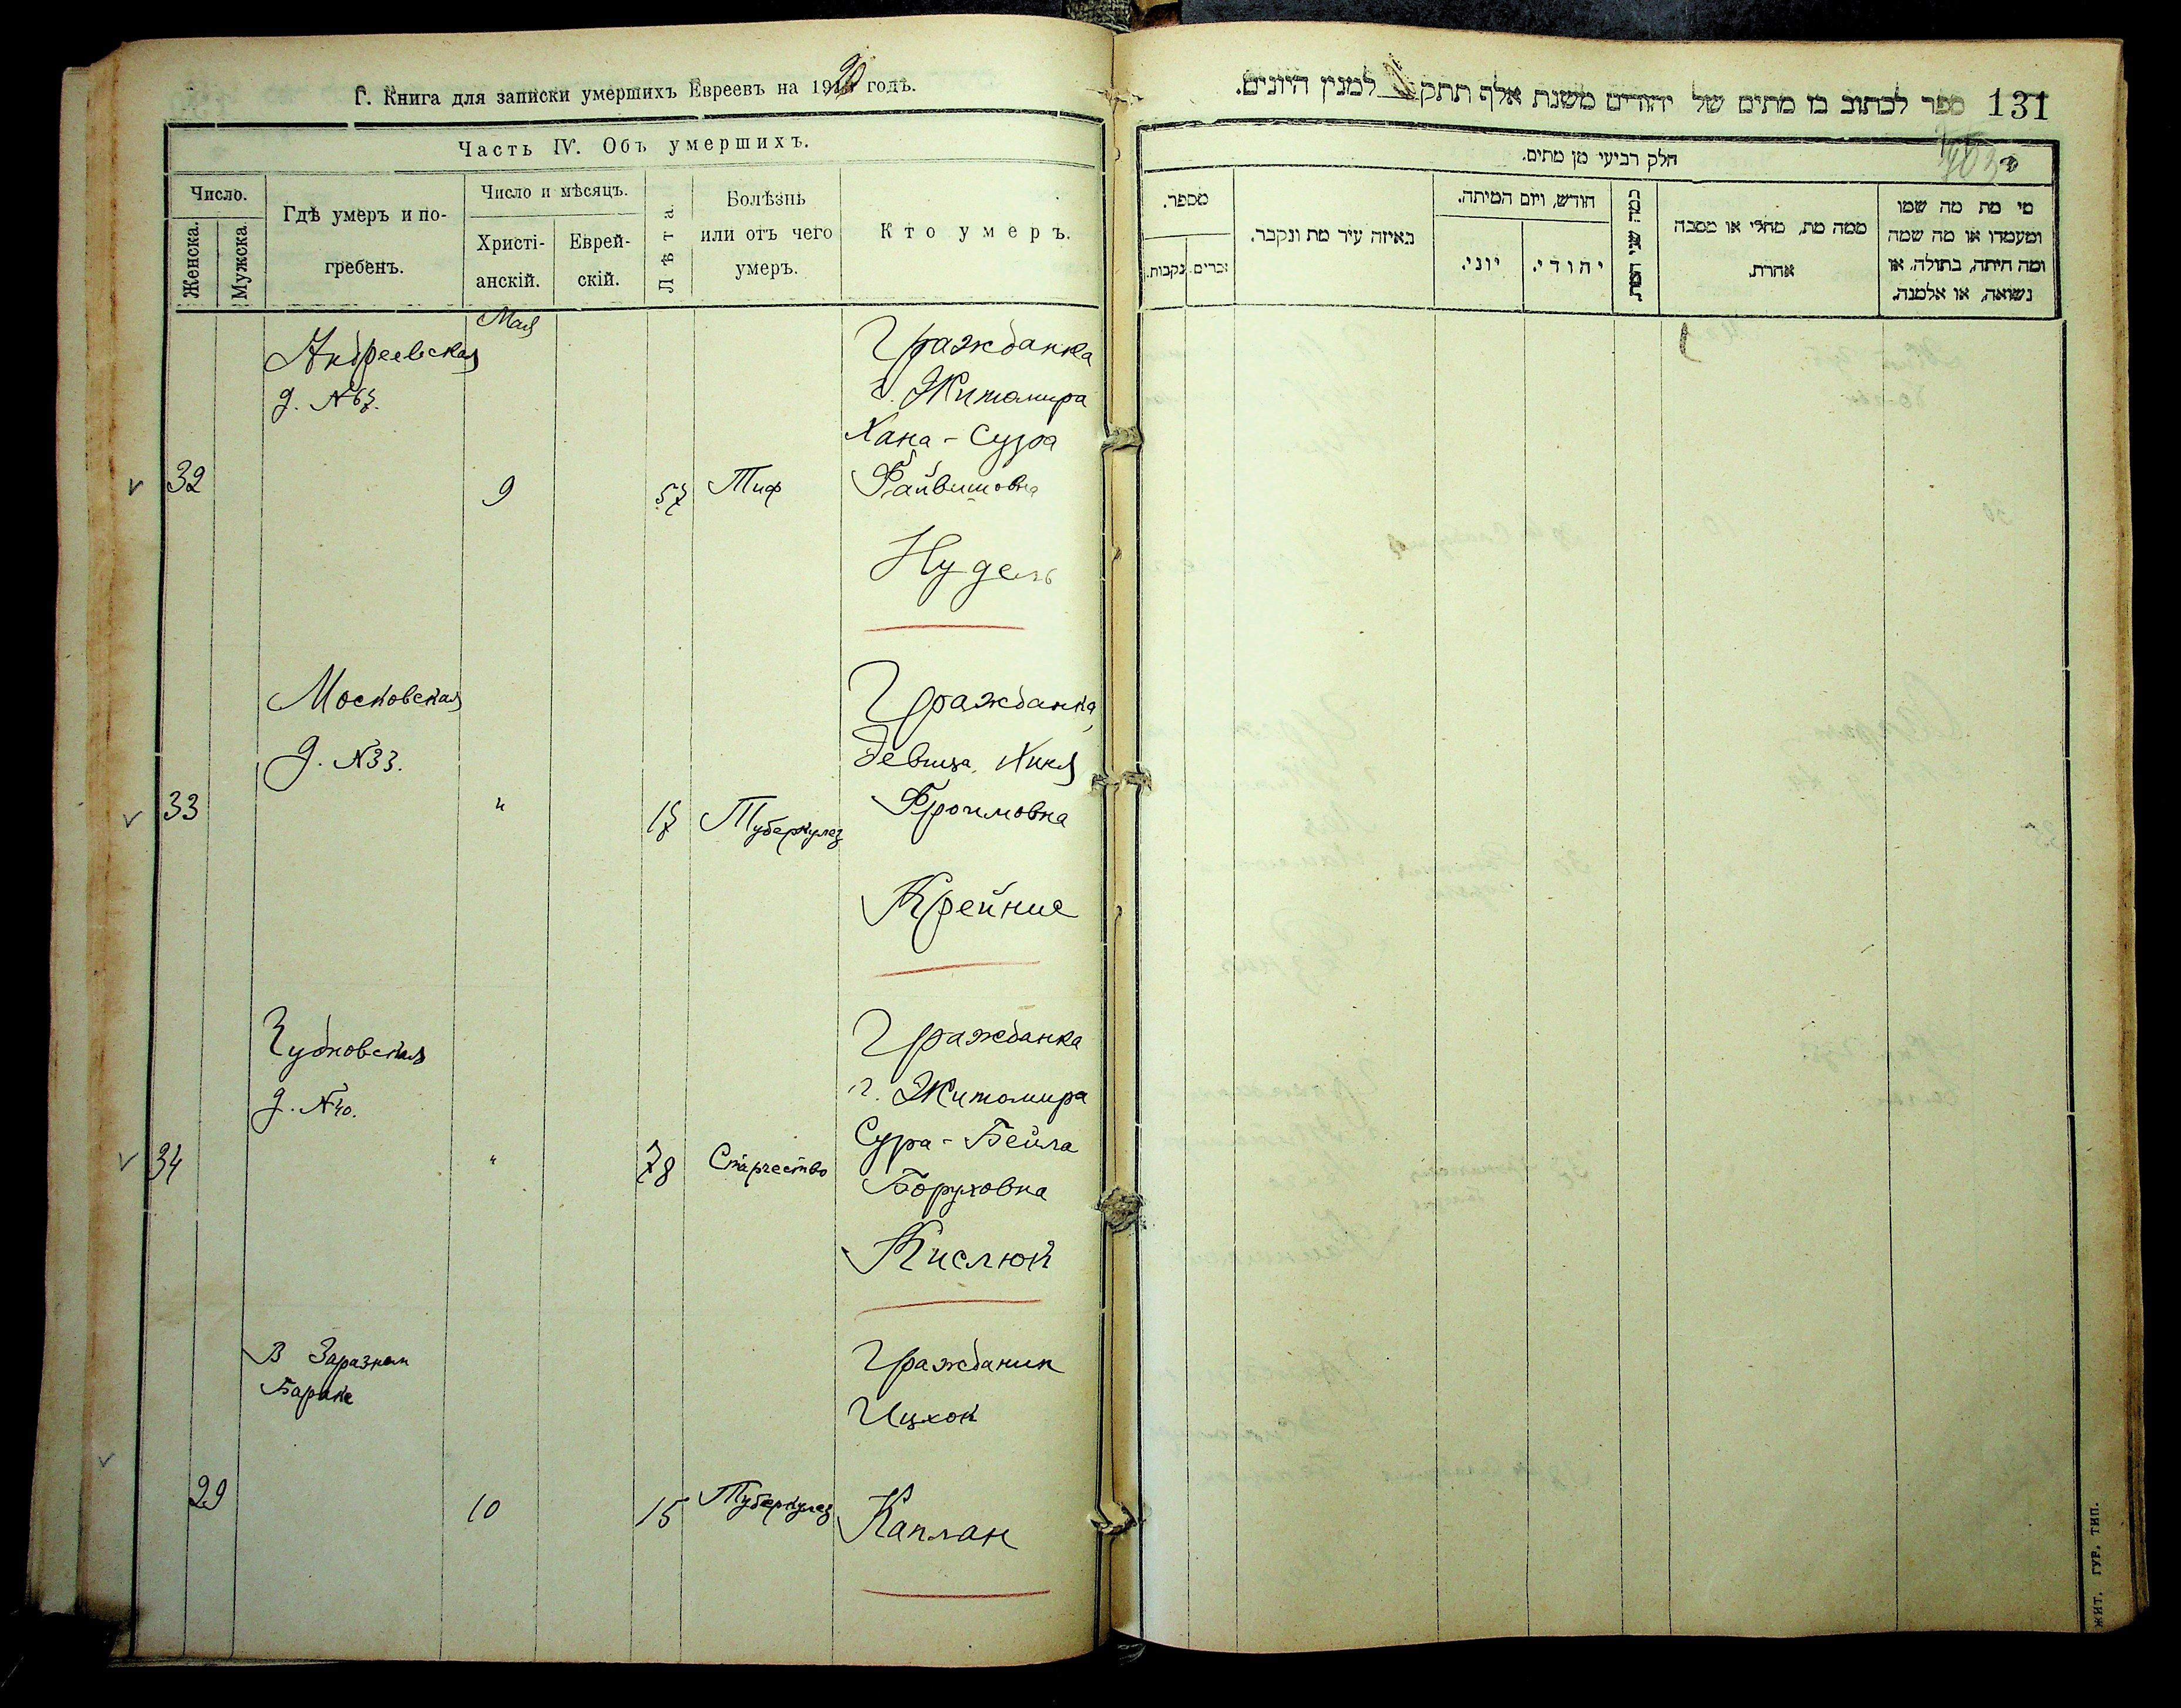 Г. Книга для записки умершихъ Евреевъ на 1920 годъ.
Часть IV. Объ умершихъ.
Число.
Женска.
Мужска.
Гдѣ умеръ и по-
гребенъ.
Число и мѣсяцъ.
Христі-
анскій.
Еврей-
скій.
Лѣта.
Болѣзнь
или отъ чего
умеръ.
Кто умеръ.
Мая
Андреевская
д. №67.
32
9
57
Тиф
Гражданка
г. Житомира
Хана - Сура
Файвишовна
Нудель
Московская
д. №33.
33
"
17
Туберкулез
Гражданка,
девица, Хикя
Фроимовна
Крейнис
Чудновская
д. №40.
34
"
78
Старчество
Гражданка
г. Житомира
Сура - Бейла
Боруховна
Кислюк
В Заразном
Бараке
29
10
15
Туберкулез
Гражданин
Ицхок
Каплан
ספר לכתוב בו מתים של יהודים משנת אלף תתק למנין היונים.
131
חלק רביעי מן מתים.
מספר.
זכרים.
נקבות.
באיזה עיר מת ונקבר.
חודש, ויום המיתה.
יוני.
יהודי.
כמה שני המת
ממה מת, מחלי או מסבה
אחרת.
מי מת מה שמו
ומעמדו או מה שמה
ומה היתה, בתולה, או
נשואה, או אלמנה.
ЖИТ. ГУР. ТИП.